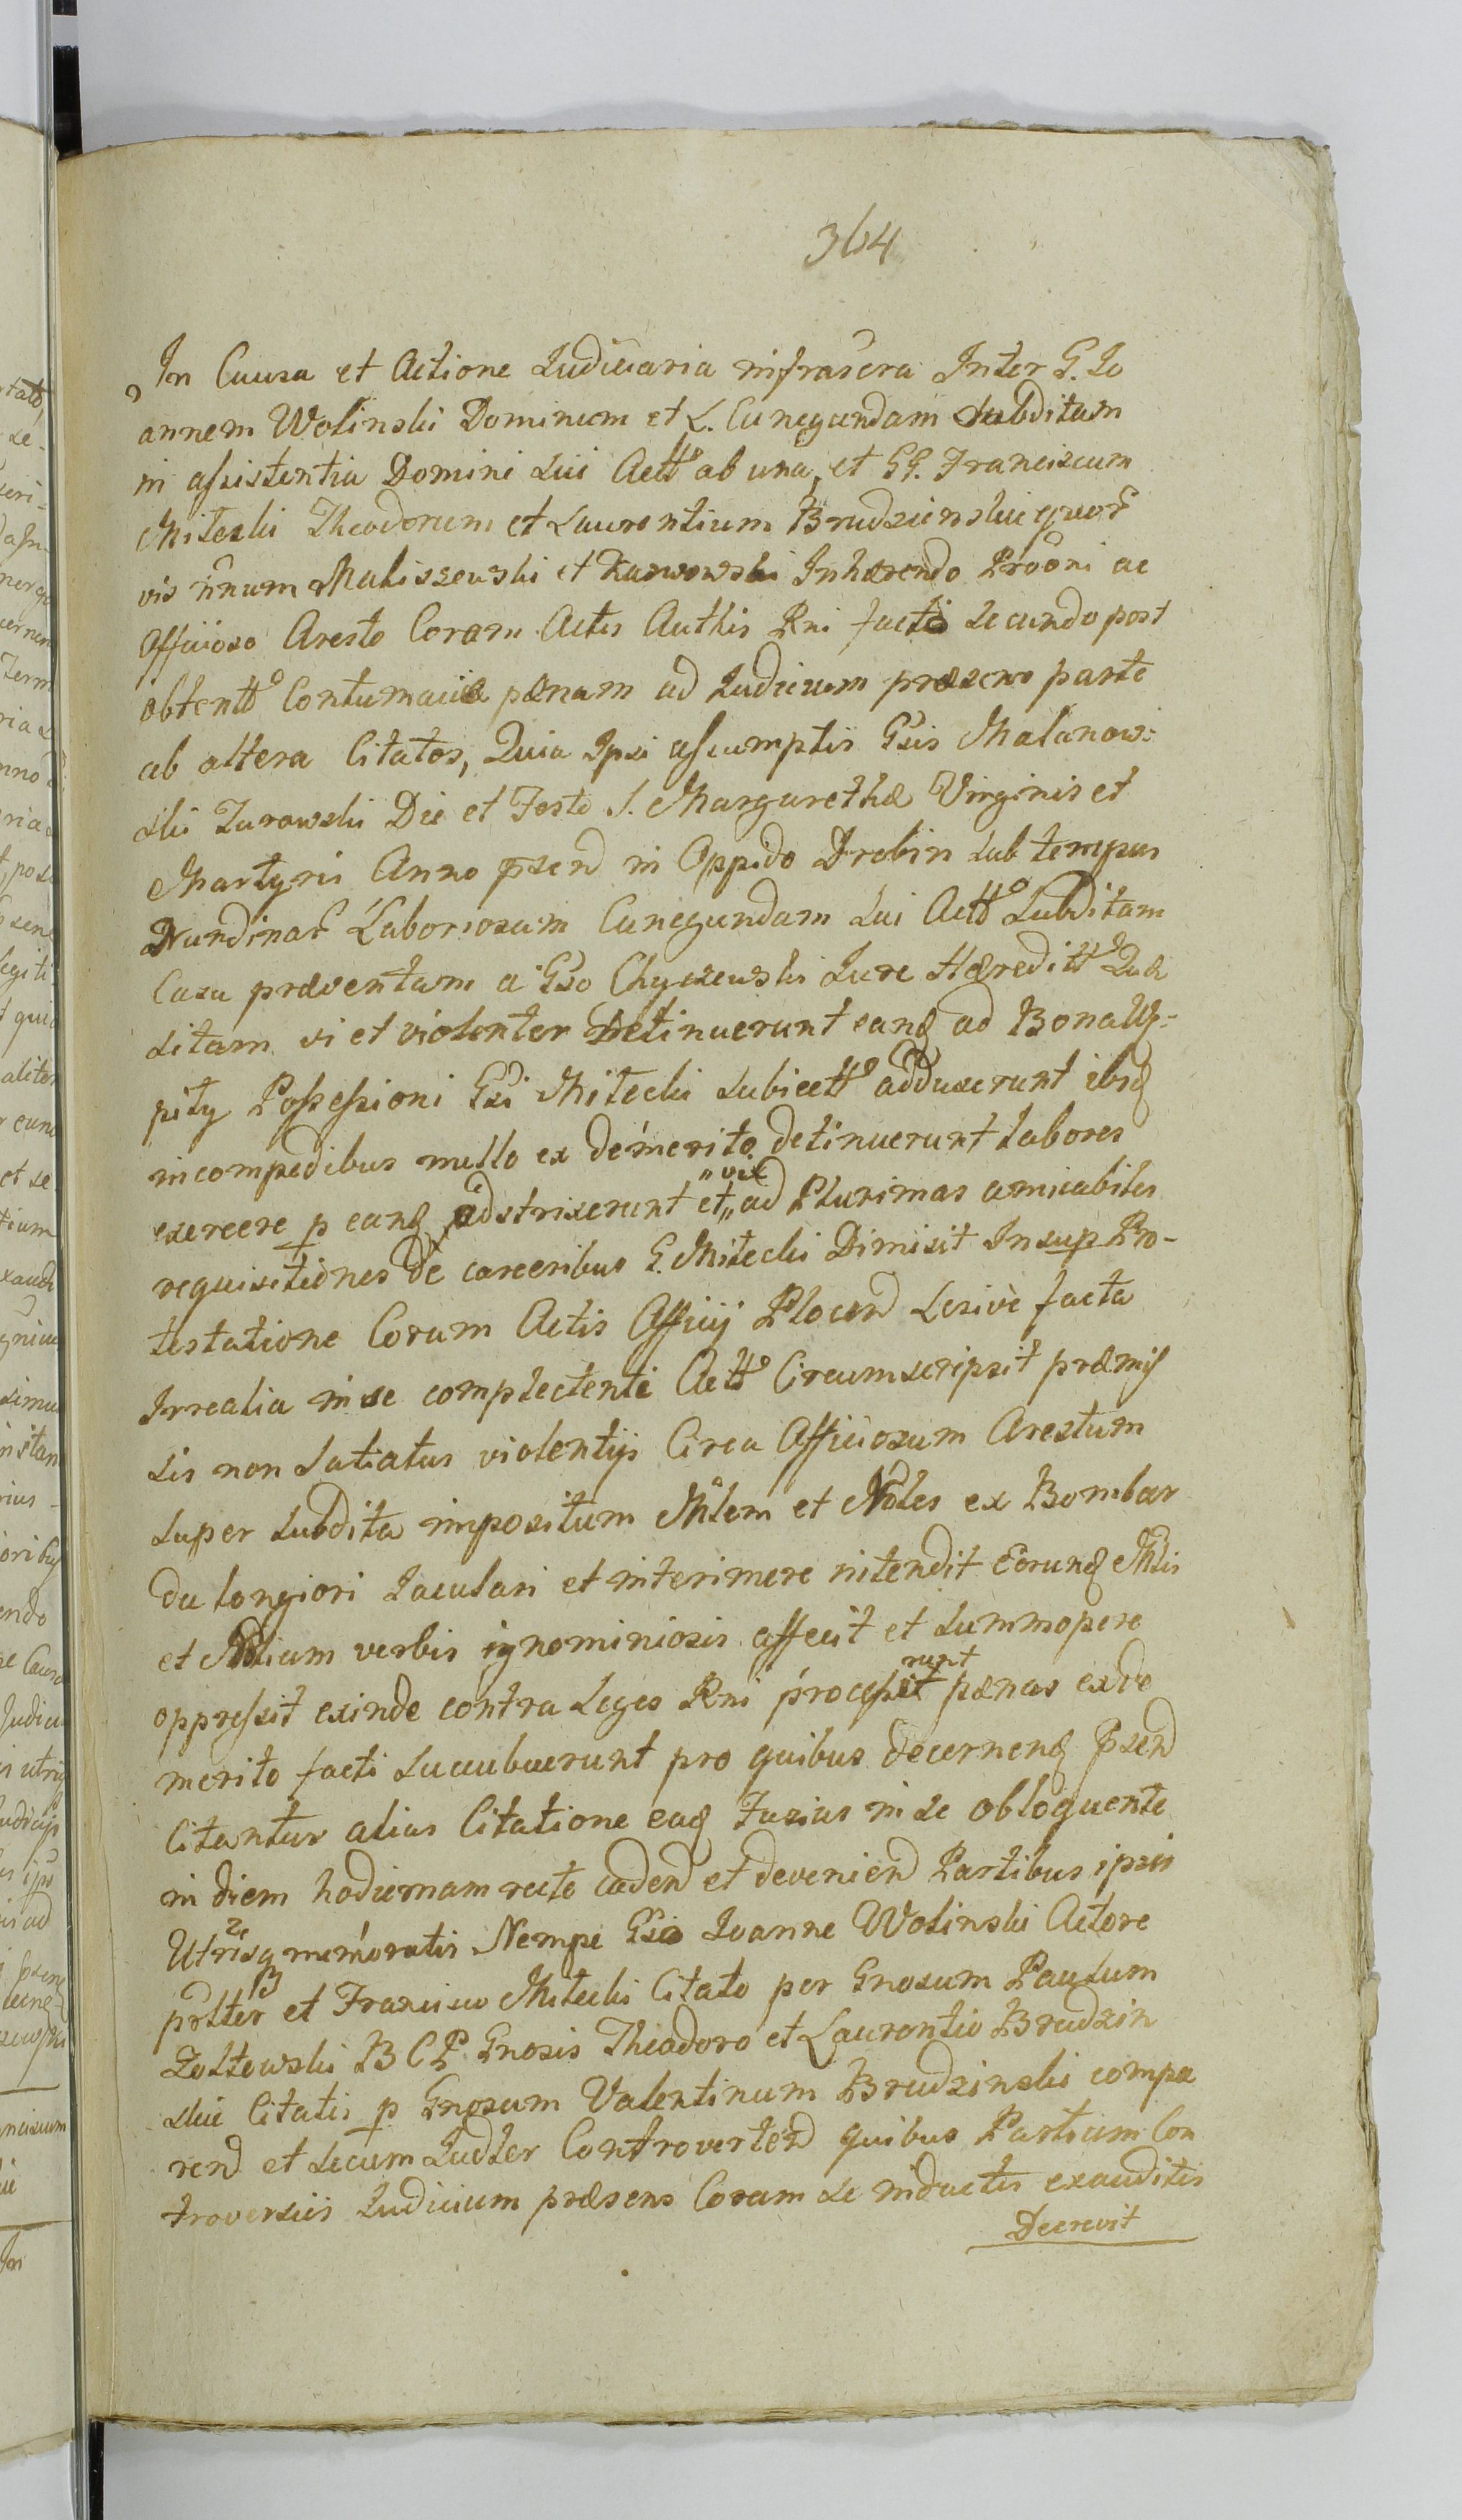 364
In Causa et Actione Judiciaria infrascra Inter G. Jo
annem Wolinski Dominum et L. Cunegundam Subditam
in assistentia Domini Sui Actt° ab una, et GG. Franciscum
Miteski Theodorum et Laurentium Brudzienskie quor
vis nnum Maliszewski et Karwowski Inhærendo Proõni ac
Officioso Aresto Coram Actis Authis Rni facto secundo post
obtentt° Contumaciæ pænam ad Judicium præsens parte
ab altera Citatos, Quia Ipsi assumptis Gsis Malanow:
ski Zurawski Die et Festo S. Margarethæ Virginis et
Martyris Anno psend in Oppido Drobin sub tempus
Nundinar Laboriosam Cunegundam sui Actt° Subditam
Casu præventam a Gso Chyczewski Jure Hæreditt° Quæ
sitam vi et violenter Detinuerunt eanq ad Bona Wy-
pity Possessioni Gsi Mitecki subiectt° adduxerunt ibiq
in compedibus nullo ex demerito detinuerunt labores
exercere p eanq adstrixerunt et „vix„ ad Plurimas amicabiles
requisitiones de carceribus G. Mitecki Dimisit Insup Pro-
testatione Coram Actis Officij Plocen d Lesive facta
Irrealia in se complectenti Actt° Circumscripsit præmis
sis non satiatus violentijs Circa Officiosum Arestum
super subdita impositum Mlem et Nobles ex Bombar
da longiori Jaculari et interimere intendit Eorunq Mlis
et Nblium verbis ignominiosis affecit et summopere
oppressit exinde contra Leges Rni processerunt pænas ex de
merito facti succubuerunt pro quibus decernenq psend
Citantur alias Citatione eaq Fusius in se obloquente
in diem hodiernam recte caden d et devenien d Partibus ipsis
Utrisq memoratis Nempe Gso Joanne Wolinski Actore
psltter et Francisco Mitecki Citato per Gnosum Paulum
Zołtowski B C P Gnosis Theodoro et Laurentio Brudzin
skie Citatis p Gnosum Valentinum Brudzinski compa
rend et secum Judter Controvertend quibus Partium Con
troversiis Judicium præsens Coram se inductis exauditis
Decrevit